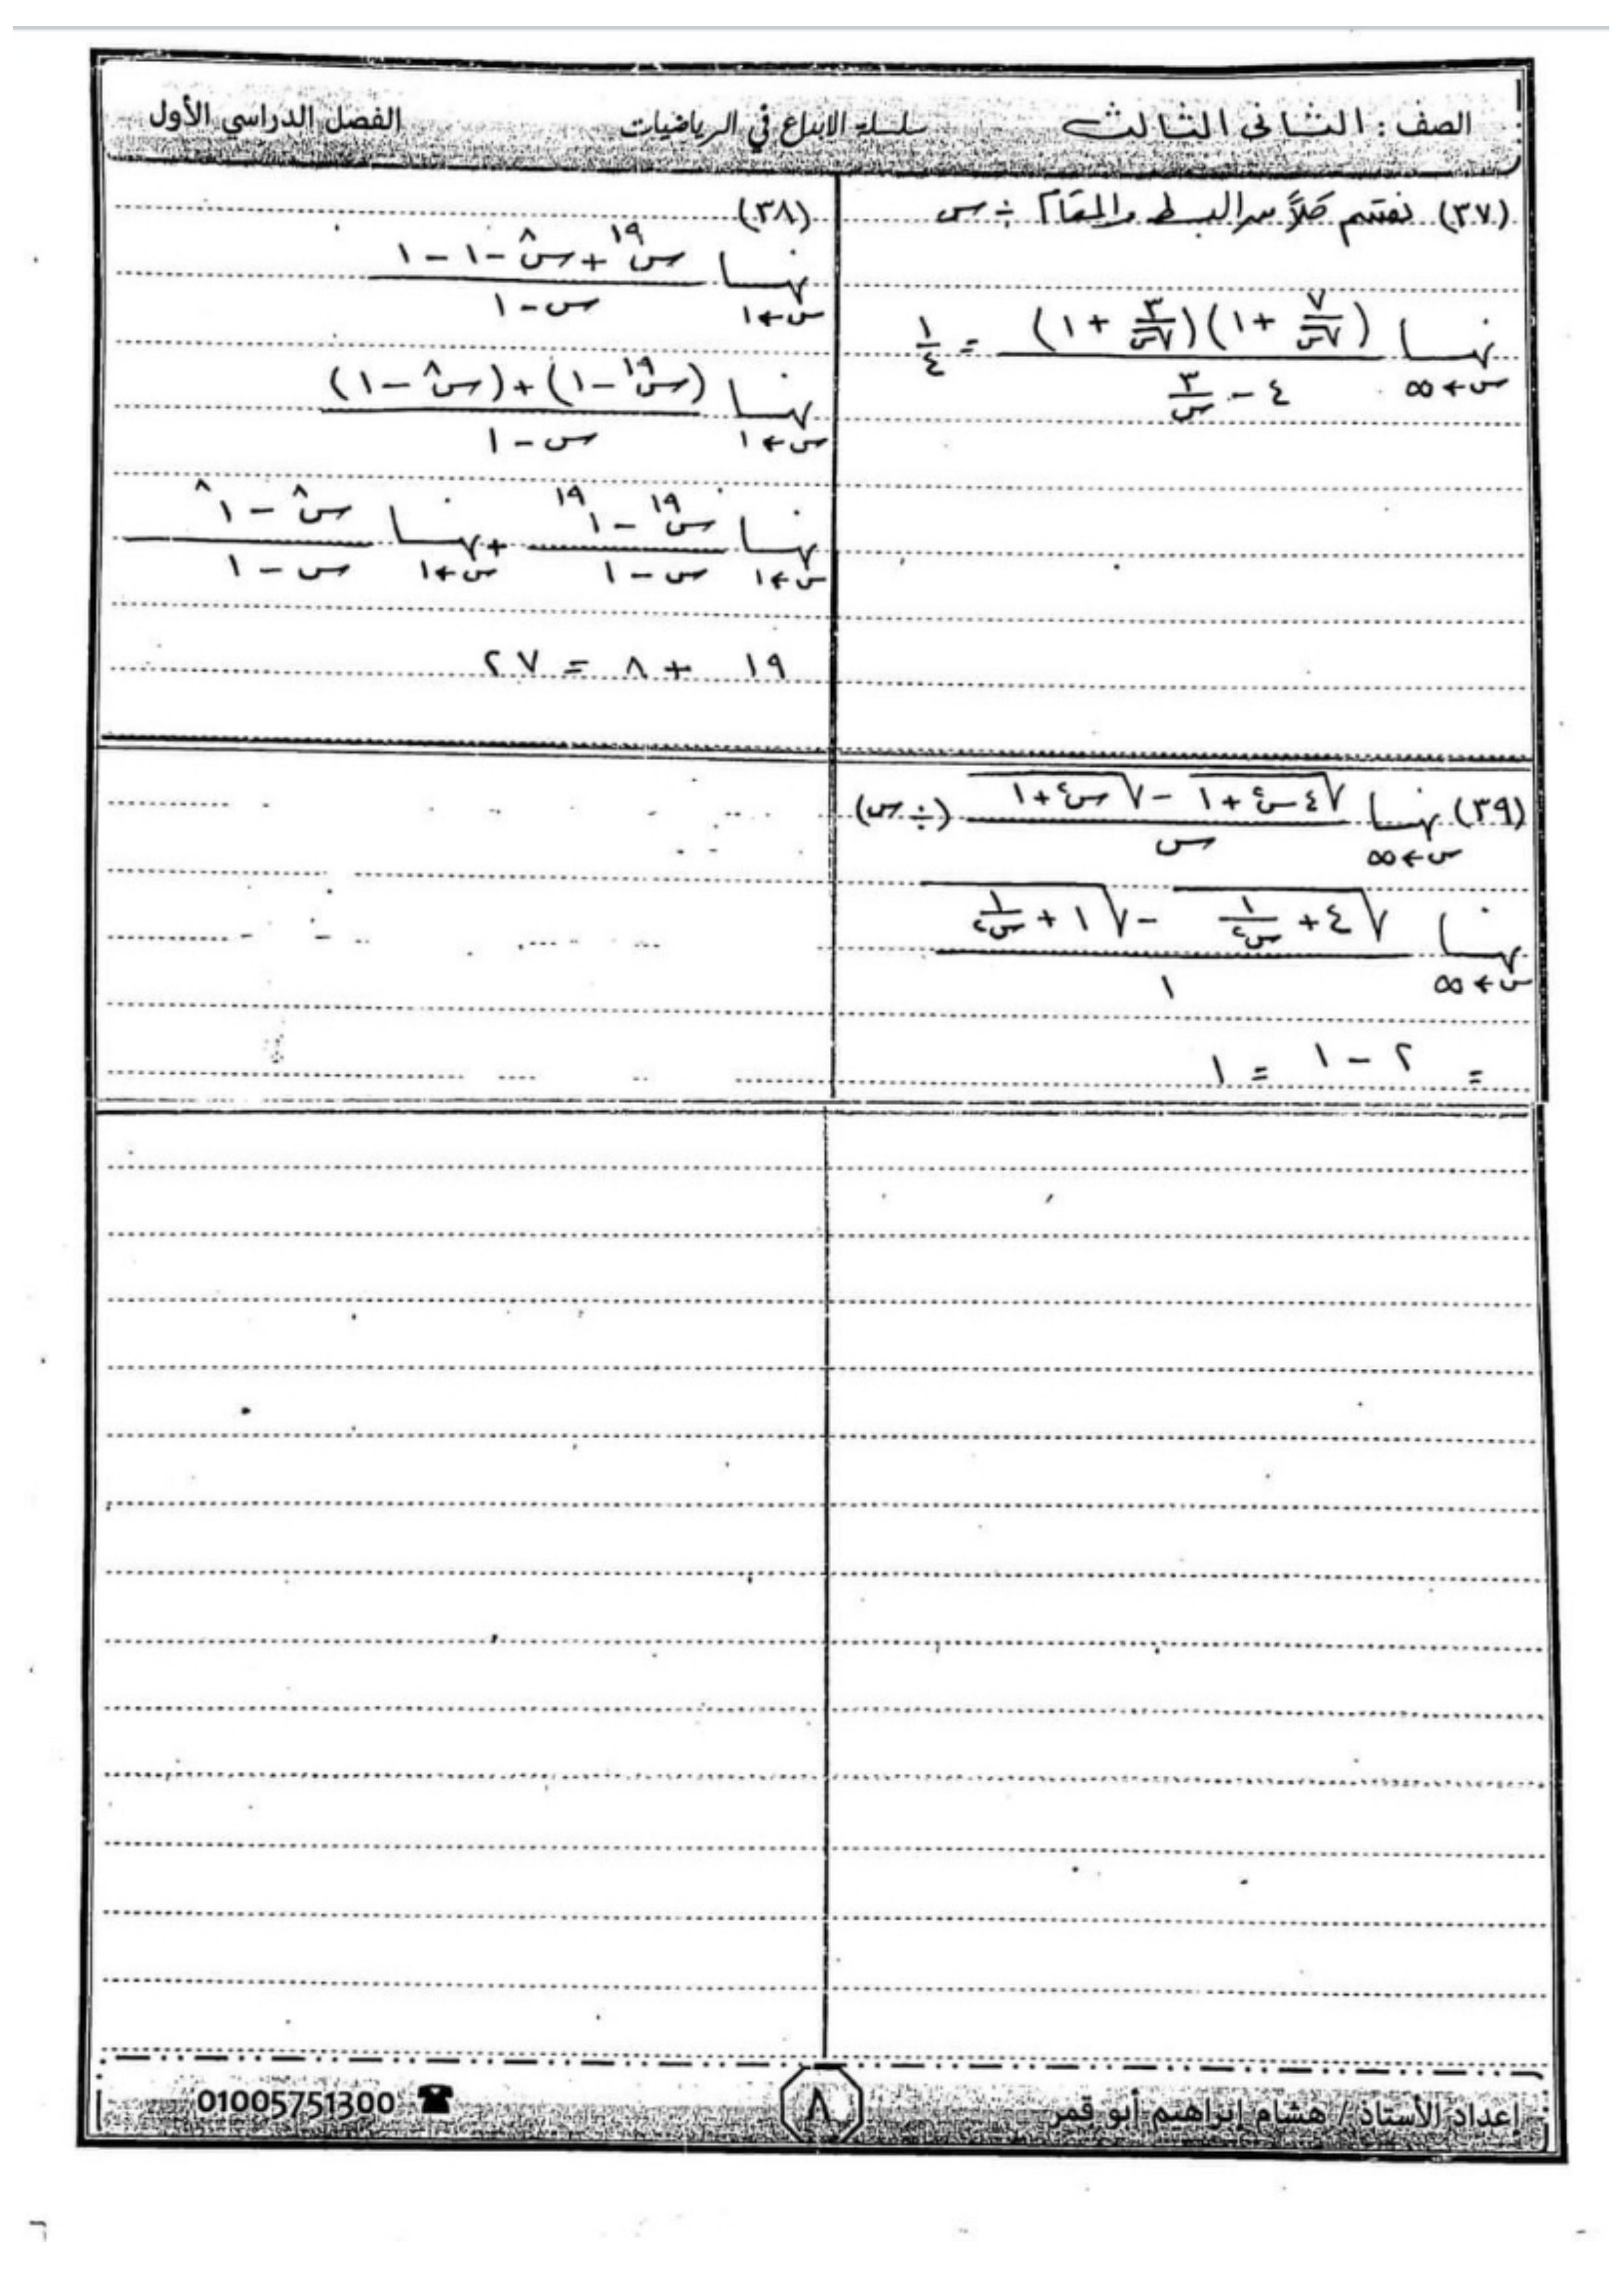 الصف : الثانى الثالث سلسلة الابداع في الرياضيات الفصل الدراسي الأول
(٣٧) نقسم كلاً من البسط والمقام ÷ س
نهــا س←∞ (٧/√س + ١)(٣/√س + ١) / (٤ - ٣/س) = ١/٤
(٣٨)
نهــا س←١ (س^١٩ + س^٨ - ١ - ١) / (س - ١)
نهــا س←١ ((س^١٩ - ١) + (س^٨ - ١)) / (س - ١)
نهــا س←١ (س^١٩ - ١^١٩) / (س - ١) + نهــا س←١ (س^٨ - ١^٨) / (س - ١)
١٩ + ٨ = ٢٧
(٣٩) نهــا س←∞ (√(٤س^٢ + ١) - √(س^٢ + ١)) / س (÷ س)
نهــا س←∞ (√(٤ + ١/س^٢) - √(١ + ١/س^٢)) / ١
= ٢ - ١ = ١
إعداد الأستاذ / هشام إبراهيم أبو قمر ٨ 01005751300